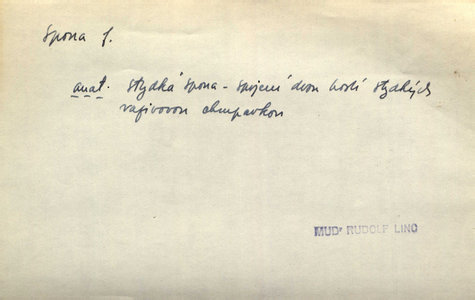 spona f.
anat. stydká spona - spojení dvou kostí stydkých
vazivovou chrupavkou
MUDr RUDOLF LINC